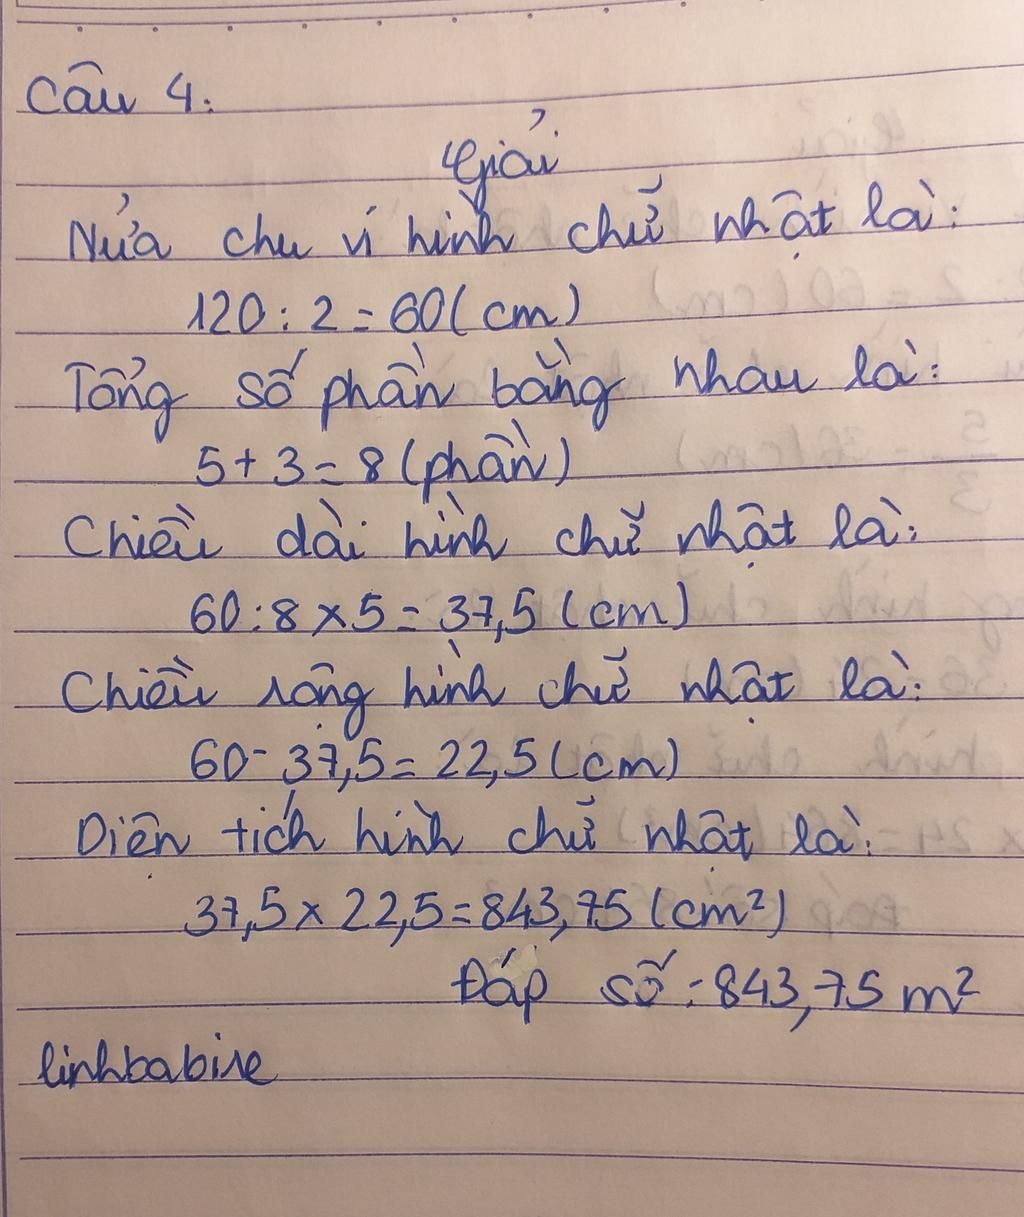 Câu 4:
Giải
Nửa chu vi hình chữ nhật là:
120 : 2 = 60 (cm)
Tổng số phần bằng nhau là:
5 + 3 = 8 (phần)
Chiều dài hình chữ nhật là:
60 : 8 x 5 = 37,5 (cm)
Chiều rộng hình chữ nhật là:
60 - 37,5 = 22,5 (cm)
Diện tích hình chữ nhật là:
37,5 x 22,5 = 843,75 (cm²)
Đáp số : 843,75 m²
linhbabire